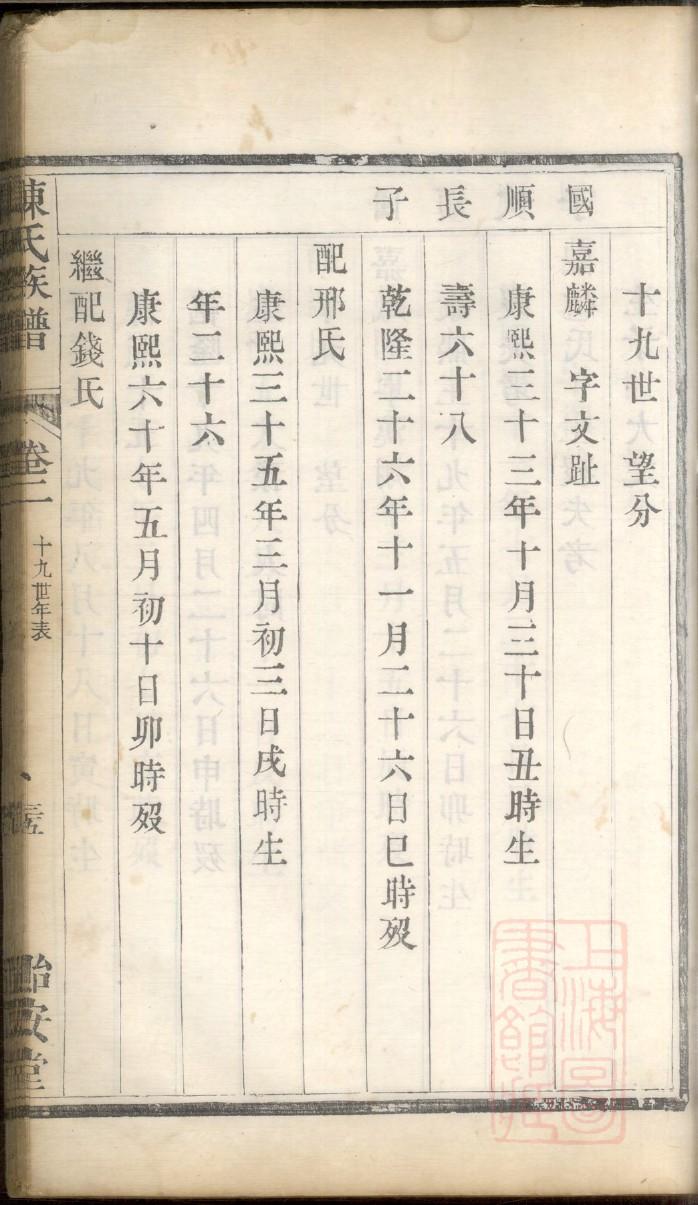 十九世大望分
國順長子
嘉麟 字文趾
康熙三十三年十月三十日丑時生
壽六十八
乾隆二十六年十一月二十六日巳時歿
配邢氏
康熙三十五年三月初三日戌時生
年二十六
康熙六十年五月初十日卯時歿
繼配錢氏
陳氏族譜 卷二 十九世年表 怡安堂
上海圖書館藏